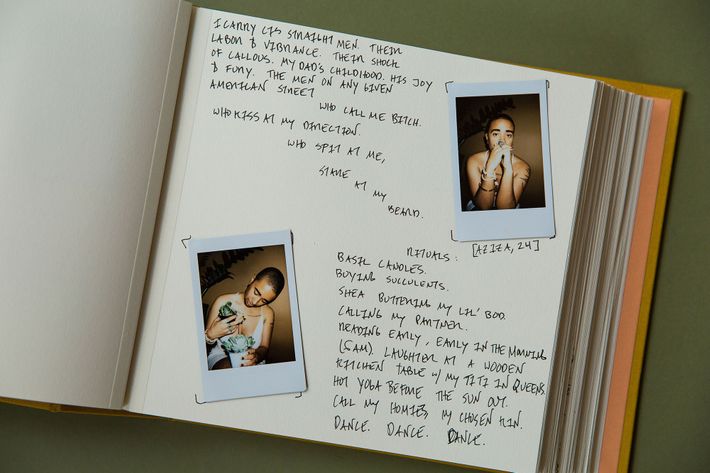 I CARRY CIS STRAIGHT MEN. THEIR
LABOR & VIBRANCE. THEIR SHOCK
OF CALLOUS. MY DAD'S CHILDHOOD. HIS JOY
& FURY. THE MEN ON ANY GIVEN
AMERICAN STREET
WHO CALL ME BITCH.
WHO KISS AT MY DIRECTION.
WHO SPIT AT ME,
STARE AT MY
BEARD.
[AZIZA, 24]
RITUALS:
BASIL CANDLES.
BUYING SUCCULENTS.
SHEA BUTTERING MY LIL' BOD.
CALLING MY PARTNER.
READING EARLY, EARLY IN THE MORNING
(5AM). LAUGHTER AT A WOODEN
KITCHEN TABLE W/ MY TITI IN QUEENS.
HOT YOGA BEFORE THE SUN OUT.
CALL MY HOMIES, MY CHOSEN KIN.
DANCE. DANCE. DANCE.